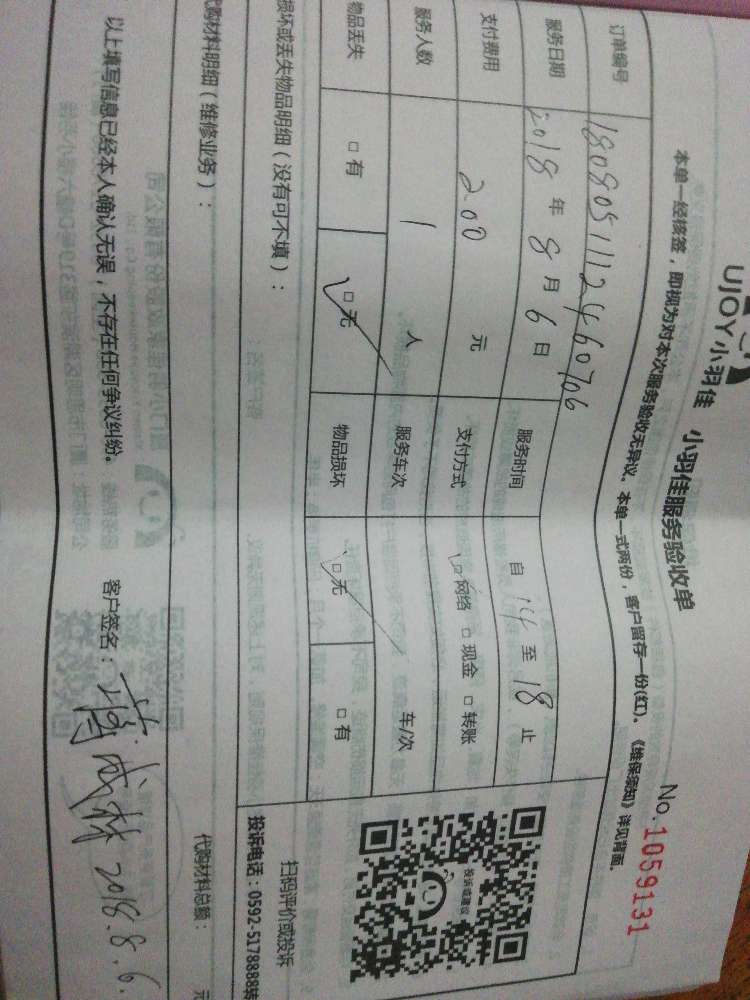 UJOY小羽佳 小羽佳服务验收单
No.1059131
本单一经核签，即视为对本次服务验收无异议。本单一式两份，客户留存一份(红)。《维保须知》详见背面。
订单编号 180805111124460706
服务日期 2018 年 8 月 6 日 服务时间 自 14 至 18 止
支付费用 200 元 支付方式 □网络 □现金 □转账
服务人数 1 人 服务车次 车/次
物品丢失 □有 □无 物品损坏 □无 □有
投诉或建议
扫码评价或投诉
投诉电话：0592-5178888转
损坏或丢失物品明细（没有可不填）：
代购材料明细（维修业务）：
代购材料总额： 元
以上填写信息已经本人确认无误，不存在任何争议纠纷。 客户签名： 2018.8.6.